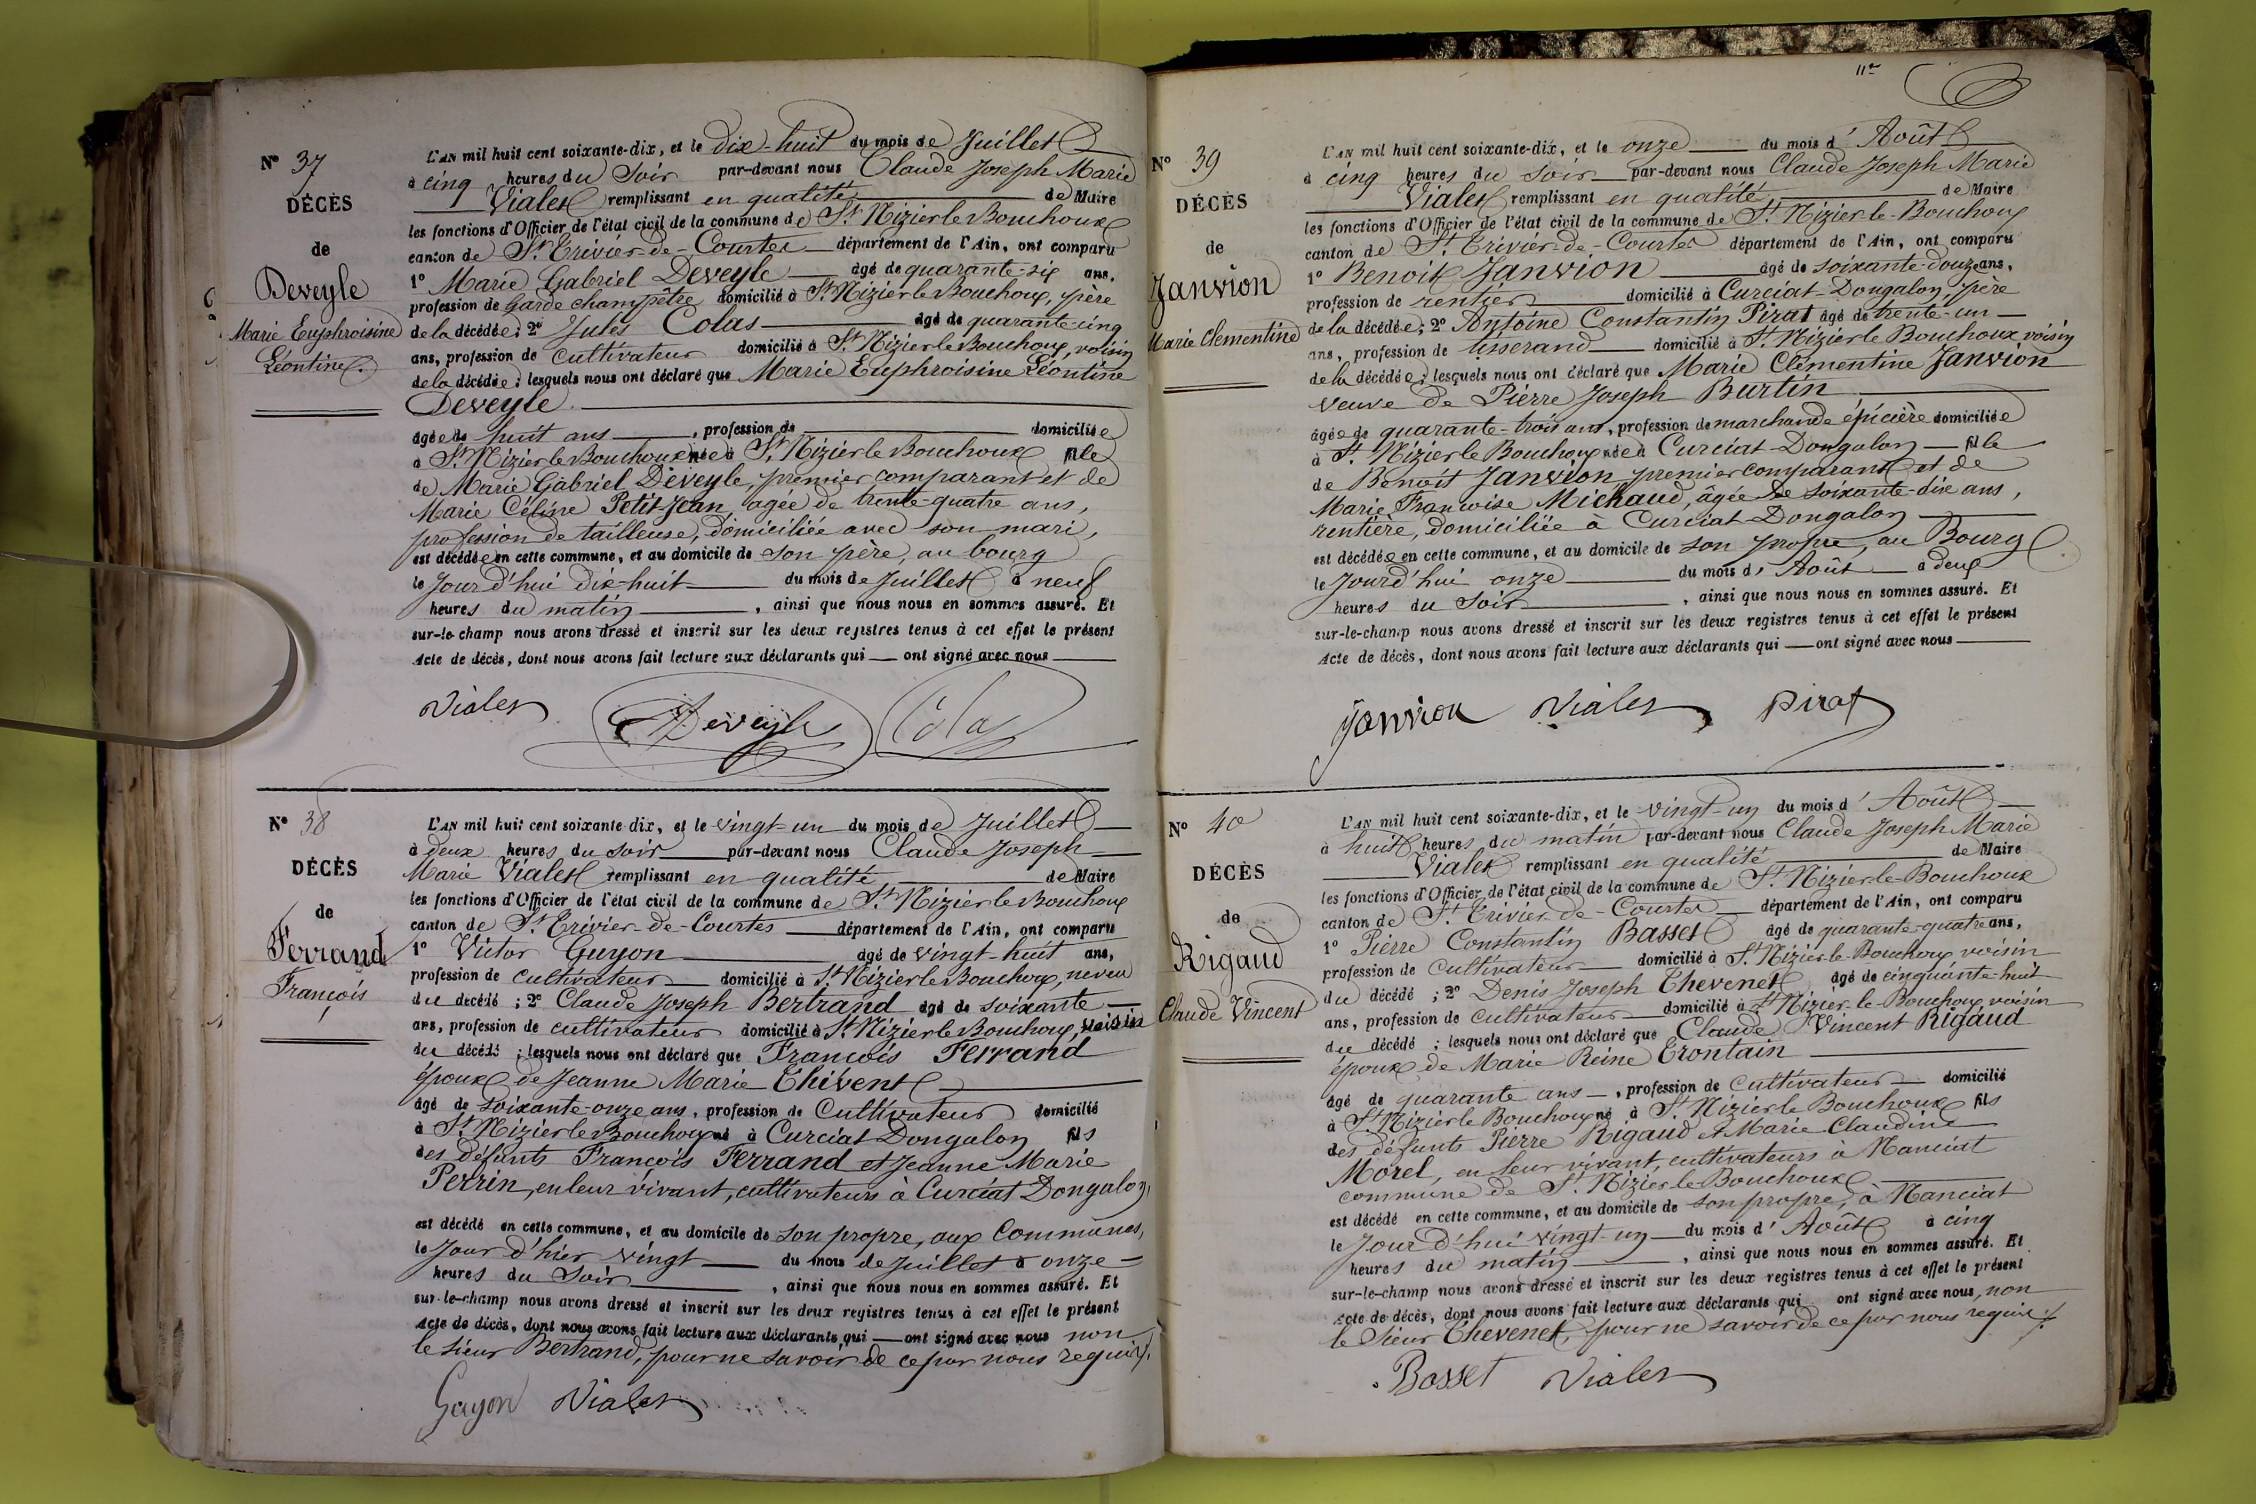 N° 37
DÉCÈS
de
Deveyle
Marie Euphroisine
Léontine.
L'AN mil huit cent soixante-dix, et le dix-huit du mois de Juillet
à cinq heures du Soir par-devant nous Claude Joseph Marie
Vialet remplissant en qualité de Maire
les fonctions d'Officier de l'état civil de la commune de St Nizier le Bouchoux
canton de St Trivier-de-Courtes département de l'Ain, ont comparu
1° Marie Gabriel Deveyle âgé de quarante-six ans,
profession de Garde champêtre domicilié à St Nizier le Bouchoux, père
de la décédée; 2° Jules Colas âgé de quarante-cinq
ans, profession de cultivateur domicilié à St Nizier le Bouchoux, voisin
de la décédée; lesquels nous ont déclaré que Marie Euphroisine Léontine
Deveyle
âgée de huit ans, profession de domiciliée
à St Nizier le Bouchoux née à St Nizier le Bouchoux fille
de Marie Gabriel Deveyle, premier comparant et de
Marie Céline Petit-Jean, agée de trente-quatre ans,
profession de tailleuse, domiciliée avec son mari,
est décédée en cette commune, et au domicile de son père, au bourg
le Jour d'hui dix-huit du mois de Juillet à neuf
heures du matin, ainsi que nous nous en sommes assuré. Et
sur-le-champ nous avons dressé et inscrit sur les deux registres tenus à cet effet le présent
Acte de décès, dont nous avons fait lecture aux déclarants qui ont signé avec nous
Vialet Deveyle Colas
N° 38
DÉCÈS
de
Ferrand
François
L'AN mil huit cent soixante-dix, et le vingt-un du mois de Juillet
à deux heures du soir par-devant nous Claude Joseph
Marie Vialet remplissant en qualité de Maire
les fonctions d'Officier de l'état civil de la commune de St Nizier le Bouchoux
canton de St Trivier-de-Courtes département de l'Ain, ont comparu
1° Victor Guyon âgé de vingt-huit ans,
profession de cultivateur domicilié à St Nizier le Bouchoux, neveu
du décédé; 2° Claude Joseph Bertrand âgé de soixante
ans, profession de cultivateur domicilié à St Nizier le Bouchoux, voisin
du décédé; lesquels nous ont déclaré que François Ferrand
époux de Jeanne Marie Thévent
âgé de soixante-onze ans, profession de Cultivateur domicilié
à St Nizier le Bouchoux né à Curciat Dongalon fils
des défunts François Ferrand et Jeanne Marie
Perrin, en leur vivant, cultivateurs à Curciat Dongalon,
est décédé en cette commune, et au domicile de son propre, aux Communes,
le Jour d'hier vingt du mois de Juillet à onze
heures du Soir, ainsi que nous nous en sommes assuré. Et
sur-le-champ nous avons dressé et inscrit sur les deux registres tenus à cet effet le présent
Acte de décès, dont nous avons fait lecture aux déclarants qui ont signé avec nous non
le sieur Bertrand, pour ne savoir de ce par nous requis.
Guyon Vialet
N° 39
DÉCÈS
de
Janvion
Marie Clementine
L'AN mil huit cent soixante-dix, et le onze du mois d'Août
à cinq heures du soir par-devant nous Claude Joseph Marie
Vialet remplissant en qualité de Maire
les fonctions d'Officier de l'état civil de la commune de St Nizier-le-Bouchoux
canton de St Trivier-de-Courtes département de l'Ain, ont comparu
1° Benoit Janvion âgé de soixante-douze ans,
profession de rentier domicilié à Curciat-Dongalon, père
de la décédée; 2° Antoine Constantin Pirat âgé de trente-un
ans, profession de tisserand domicilié à St Nizier le Bouchoux voisin
de la décédée; lesquels nous ont déclaré que Marie Clémentine Janvion
veuve de Pierre Joseph Burtin
âgée de quarante-trois ans, profession de marchande épicière domiciliée
à St Nizier le Bouchoux née à Curciat-Dongalon fille
de Benoît Janvion, premier comparant et de
Marie Françoise Michaud, âgée de soixante-dix ans,
rentière, domiciliée à Curciat-Dongalon
est décédée en cette commune, et au domicile de son propre, au Bourg
le Jour d'hui onze du mois d'Août à deux
heures du Soir, ainsi que nous nous en sommes assuré. Et
sur-le-champ nous avons dressé et inscrit sur les deux registres tenus à cet effet le présent
Acte de décès, dont nous avons fait lecture aux déclarants qui ont signé avec nous
Janvion Vialet Pirat
N° 40
DÉCÈS
de
Rigaud
Claude Vincent
L'AN mil huit cent soixante-dix, et le vingt-un du mois d'Août
à huit heures du matin par-devant nous Claude Joseph Marie
Vialet remplissant en qualité de Maire
les fonctions d'Officier de l'état civil de la commune de St Nizier-le-Bouchoux
canton de St Trivier-de-Courtes département de l'Ain, ont comparu
1° Pierre Constantin Basset âgé de quarante-quatre ans,
profession de Cultivateur domicilié à St Nizier-le-Bouchoux voisin
du décédé; 2° Denis Joseph Thevenet âgé de cinquante-huit
ans, profession de Cultivateur domicilié à St Nizier-le-Bouchoux voisin
du décédé; lesquels nous ont déclaré que Claude Vincent Rigaud
époux de Marie Reine Trontain
âgé de quarante ans, profession de Cultivateur domicilié
à St Nizier le Bouchoux né à St Nizier le Bouchoux fils
des défunts Pierre Rigaud et Marie Claudine
Morel, en leur vivant, cultivateurs à Manciat
commune de St Nizier-le-Bouchoux
est décédé en cette commune, et au domicile de son propre, à Manciat
le Jour d'hui vingt-un du mois d'Août à cinq
heures du matin, ainsi que nous nous en sommes assuré. Et
sur-le-champ nous avons dressé et inscrit sur les deux registres tenus à cet effet le présent
Acte de décès, dont nous avons fait lecture aux déclarants qui ont signé avec nous, non
le sieur Thevenet, pour ne savoir de ce par nous requis.
Basset Vialet